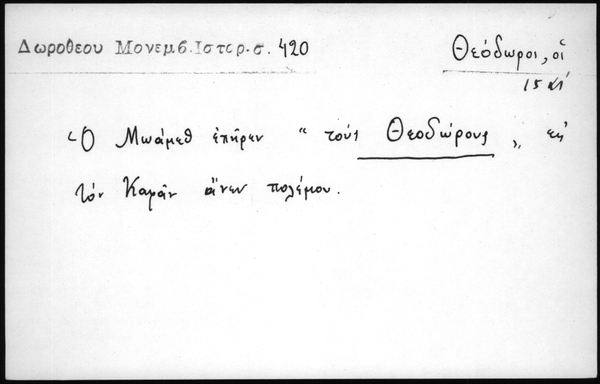 Δωροθεου Μονεμβ.Ιστορ.σ. 420
Θεόδωροι, οἱ
15 αἰ
Ὁ Μωάμεθ ἐπῆρεν " τούς Θεοδώρους " εἰς
τόν Καρᾶν ἄνευ πολέμου.